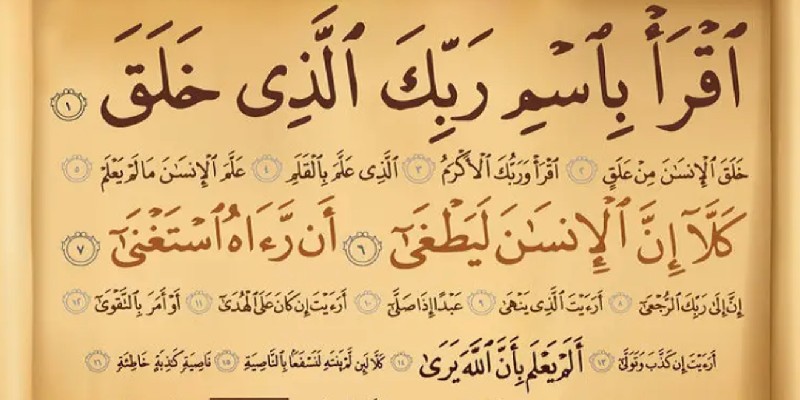 ٱقْرَأْ بِٱسْمِ رَبِّكَ ٱلَّذِى خَلَقَ ١
خَلَقَ ٱلْإِنسَٰنَ مِنْ عَلَقٍ ٢ ٱقْرَأْ وَرَبُّكَ ٱلْأَكْرَمُ ٣ ٱلَّذِى عَلَّمَ بِٱلْقَلَمِ ٤ عَلَّمَ ٱلْإِنسَٰنَ مَا لَمْ يَعْلَمْ ٥
كَلَّآ إِنَّ ٱلْإِنسَٰنَ لَيَطْغَىٰٓ ٦ أَن رَّءَاهُ ٱسْتَغْنَىٰٓ ٧
إِنَّ إِلَىٰ رَبِّكَ ٱلرُّجْعَىٰٓ ٨ أَرَءَيْتَ ٱلَّذِى يَنْهَىٰ ٩ عَبْدًا إِذَا صَلَّىٰٓ ١٠ أَرَءَيْتَ إِن كَانَ عَلَى ٱلْهُدَىٰٓ ١١ أَوْ أَمَرَ بِٱلتَّقْوَىٰٓ ١٢
أَرَءَيْتَ إِن كَذَّبَ وَتَوَلَّىٰٓ ١٣ أَلَمْ يَعْلَم بِأَنَّ ٱللَّهَ يَرَىٰ ١٤ كَلَّا لَئِن لَّمْ يَنتَهِ لَنَسْفَعًۢا بِٱلنَّاصِيَةِ ١٥ نَاصِيَةٍ كَٰذِبَةٍ خَاطِئَةٍ ١٦